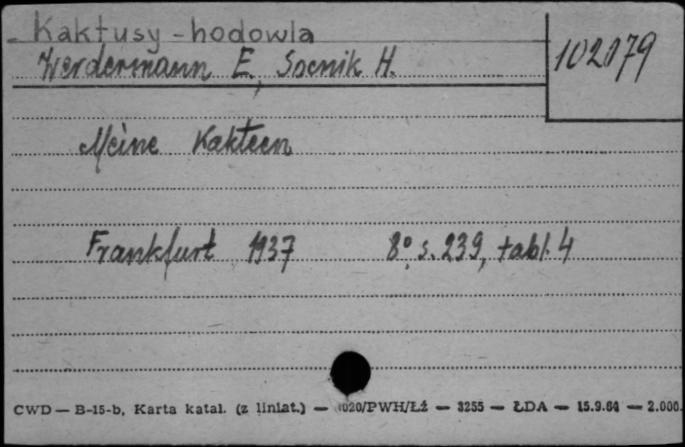 Kaktusy - hodowla
Werdermann E., Socnik H.
102079
Meine Kakteen
Frankfurt 1937 8° s. 239, tabl. 4
CWD — B-15-b, Karta katal. (z liniat.) — 1020/PWH/Łź — 3255 — ŁDA — 15.9.64 — 2.000.